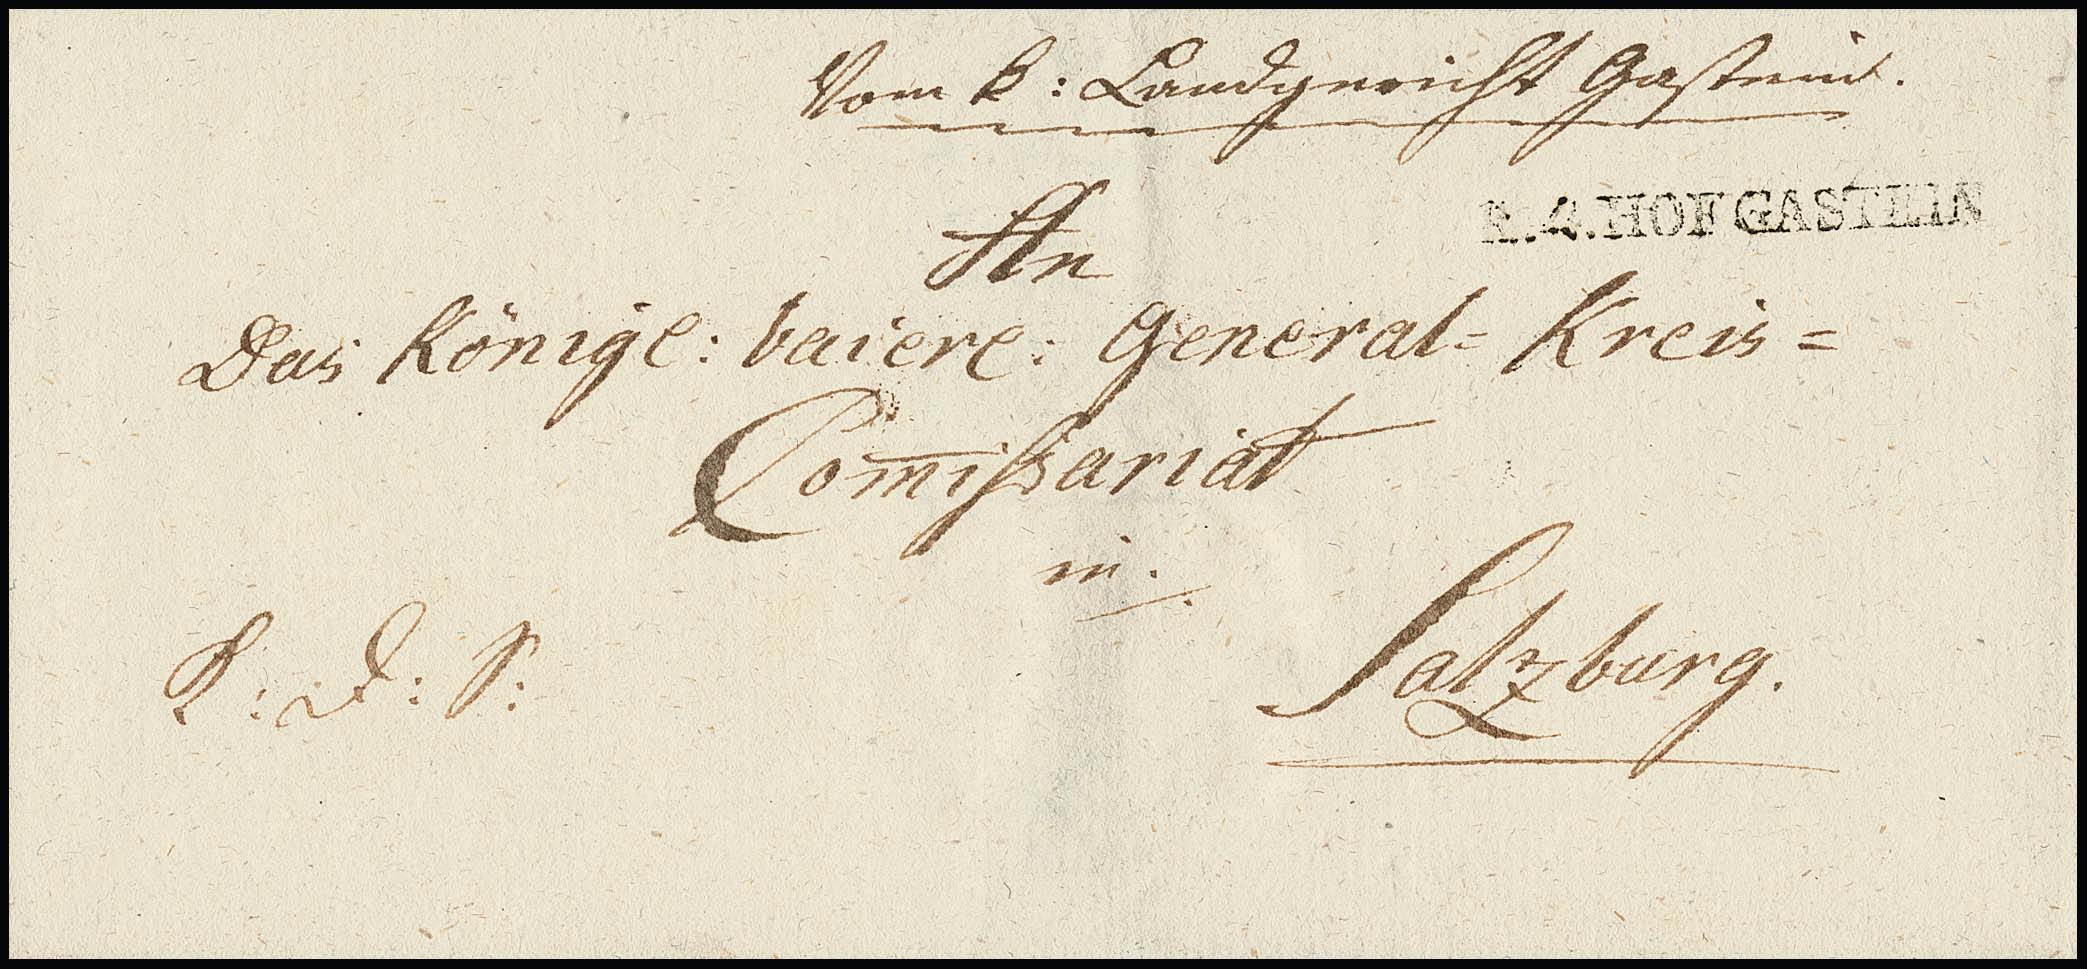 Vom k: Landgericht Gastein.
R.4.HOFGASTEIN
An
Das Königl: baierl: General= Kreis=
Com̅ißariat
in.
Salzburg.
R: D: S: